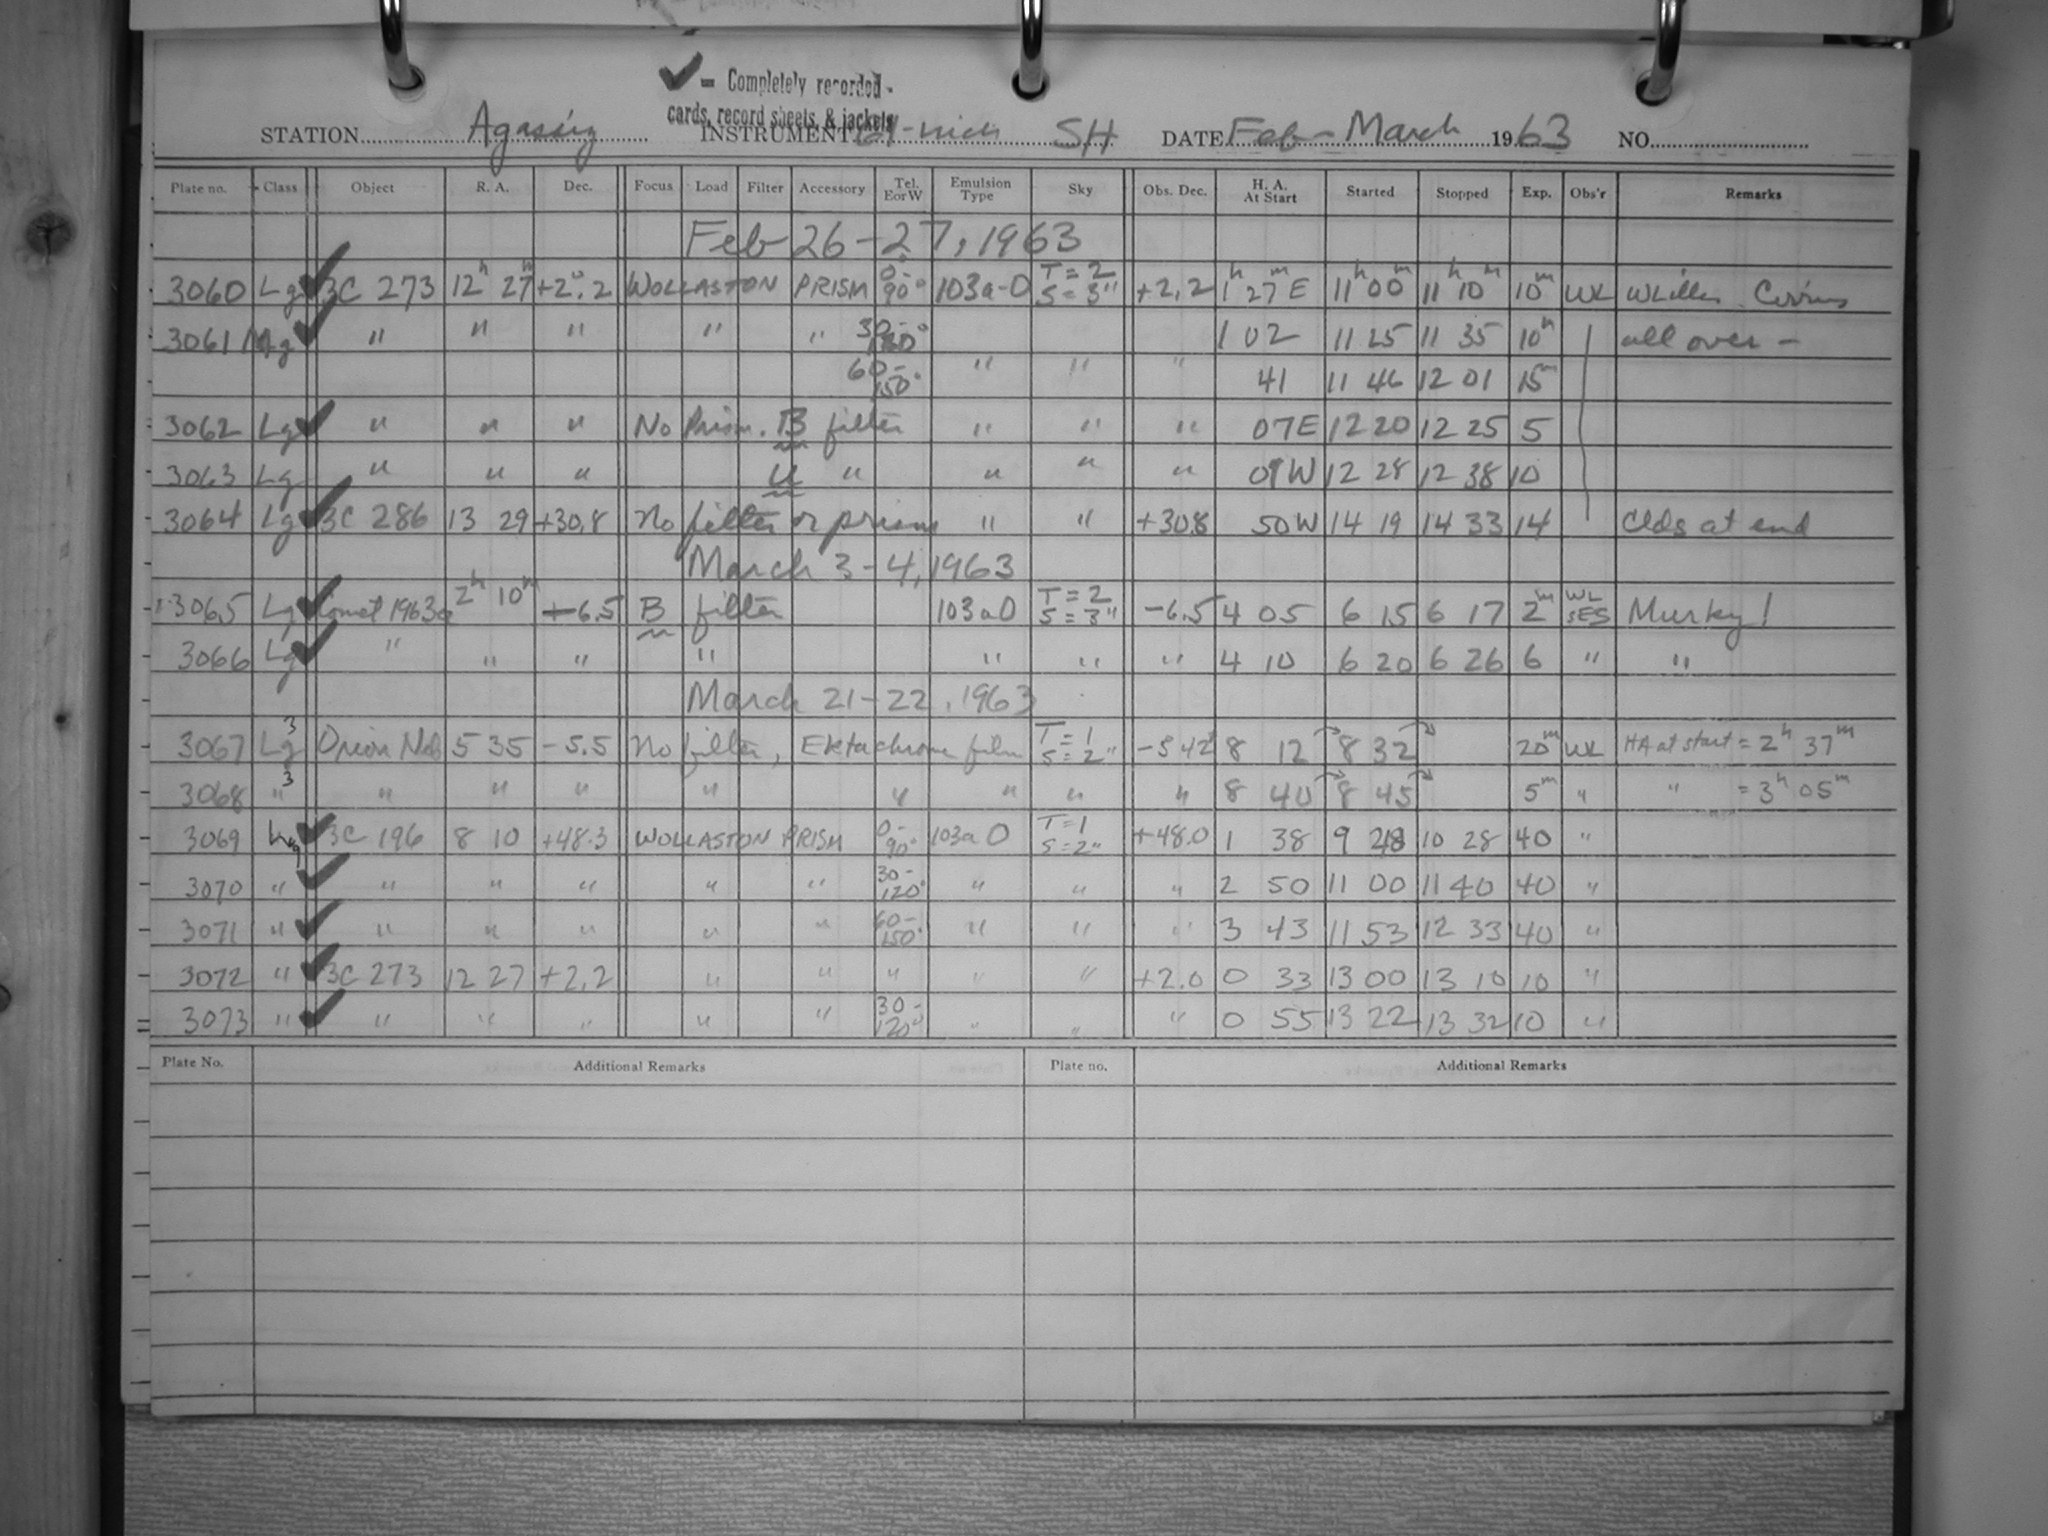 ✓ = Completely recorded -
cards, record sheets, & jackets
STATION Agassiz INSTRUMENT 61-inch SH DATE Feb - March 1963 NO.
Plate no. Class Object R. A. Dec. Focus Load Filter Accessory Tel. E or W Emulsion Type Sky Obs. Dec. H. A. At Start Started Stopped Exp. Obs'r Remarks
Feb 26-27, 1963
3060 Lg ✓ 3C 273 12h 27m +2°.2 WOLLASTON PRISM 0-90° 103a-O T=2 S=3" +2.2 1h 27m E 11h 00m 11h 10m 10m WL Cirrus
3061 ✓ " " " " " 30- 103a-O 1 02 11 25 11 35 10m all over -
60-150° " " " 41 11 46 12 01 15
3062 Lg ✓ " " " No Prism. B filter " " " 07E 12 20 12 25 5
3063 Lg " " " U " " " " 01W 12 28 12 38 10
3064 Lg ✓ 3C 286 13 29 +30.8 No filter or prism " " +30.8 50W 14 19 14 33 14 Clds at end
March 3-4, 1963
3065 Lg ✓ Comet 1963a 2h 10m -6.5 B filter 103aO T=2 S=3" -6.5 4 05 6 15 6 17 2m WL SES Murky!
3066 Lg ✓ " " " " " " " 4 10 6 20 6 26 6 " "
March 21-22, 1963
3067 Lg3 Orion Neb 5 35 -5.5 No filter, Ektachrome film T=1 S=2" -5 42 8 12 8 32 20m WL HA at start = 2h 37m
3068 "3 " " " " " " " " 8 40 8 45 5m " " = 3h 05m
3069 ✓ 3C 196 8 10 +48.3 WOLLASTON PRISM 0-90° 103a O T=1 S=2" +48.0 1 38 9 48 10 28 40 "
3070 " ✓ " " " " " 30-120° " " " 2 50 11 00 11 40 40 "
3071 " ✓ " " " " " 60-150° " " " 3 43 11 53 12 33 40 "
3072 " ✓ 3C 273 12 27 +2.2 " " " " " +2.0 0 33 13 00 13 10 10 "
3073 " ✓ " " " " " 30-120° " " " 0 55 13 22 13 32 10 "
Plate No. Additional Remarks Plate no. Additional Remarks